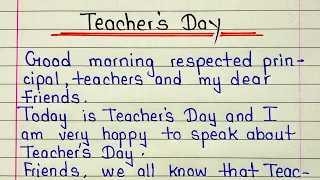 Teacher's Day
Good morning respected prin-
cipal, teachers and my dear
friends.
Today is Teacher's Day and I
am very happy to speak about
Teacher's Day.
Friends, we all know that Teac-